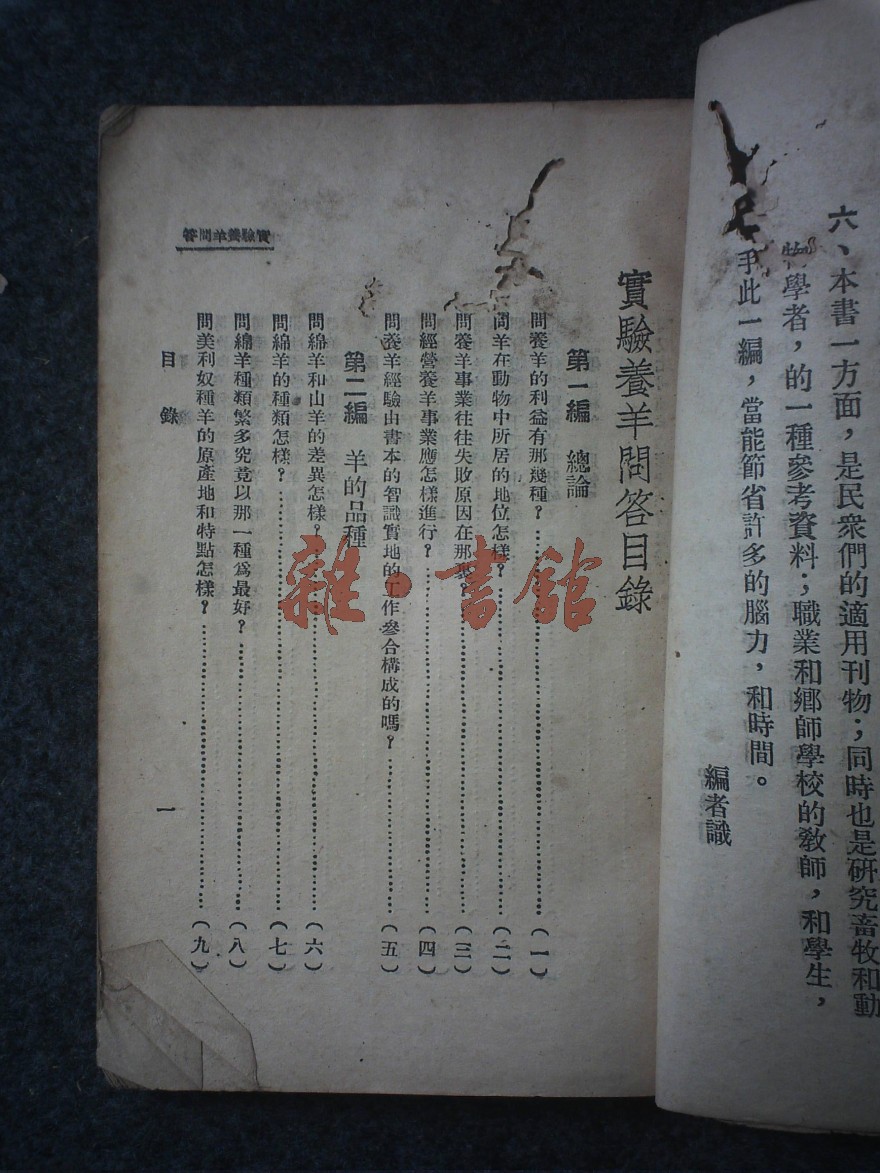 六、本書一方面，是民衆們的適用刊物；同時也是研究畜牧和動
物學者，的一種參考資料；職業和鄉師學校的教師，和學生，
手此一編，當能節省許多的腦力，和時間。
編者識
實驗養羊問答目錄
第一編 總論
問養羊的利益有那幾種？……（一）
問羊在動物中所居的地位怎樣？……（二）
問養羊事業往往失敗原因在那裏？……（三）
問經營養羊事業應怎樣進行？……（四）
問養羊經驗由書本的智識實地的工作參合構成的嗎？……（五）
第二編 羊的品種
問綿羊和山羊的差異怎樣？……（六）
問綿羊的種類怎樣？……（七）
問綿羊種類繁多究竟以那一種爲最好？……（八）
問美利奴種羊的原產地和特點怎樣？……（九）
實驗養羊問答
目錄
一
雜·書館